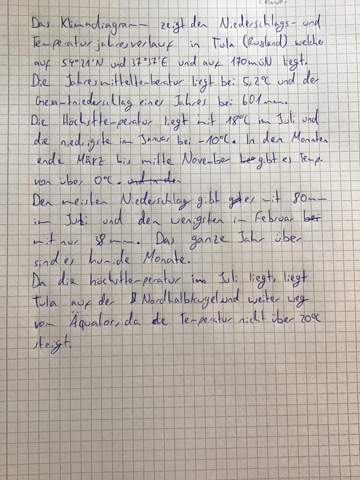 Das Klimadiagramm zeigt den Niederschlags- und
Temperaturjahresverlauf in Tula (Russland) welche
auf 54°21'N und 37°37'E und auf 170müN liegt.
Die Jahresmitteltemperatur liegt bei 5,2°C und der
Gesamtniederschlag eines Jahres bei 601mm.
Die Höchsttemperatur liegt mit 18°C im Juli und
die niedrigste im Januar bei -10°C. In den Monaten
ende März bis mitte November gibt es Temp.
von über 0°C.
Den meisten Niederschlag gibt es mit 80mm
im Juli und den wenigsten im Februar
mit nur 38mm. Das ganze Jahr über
sind es humide Monate.
Da die höchsttemperatur im Juli liegt, liegt
Tula auf der Nordhalbkugel und weiter weg
vom Äquator, da die Temperatur nicht über 20°C
steigt.